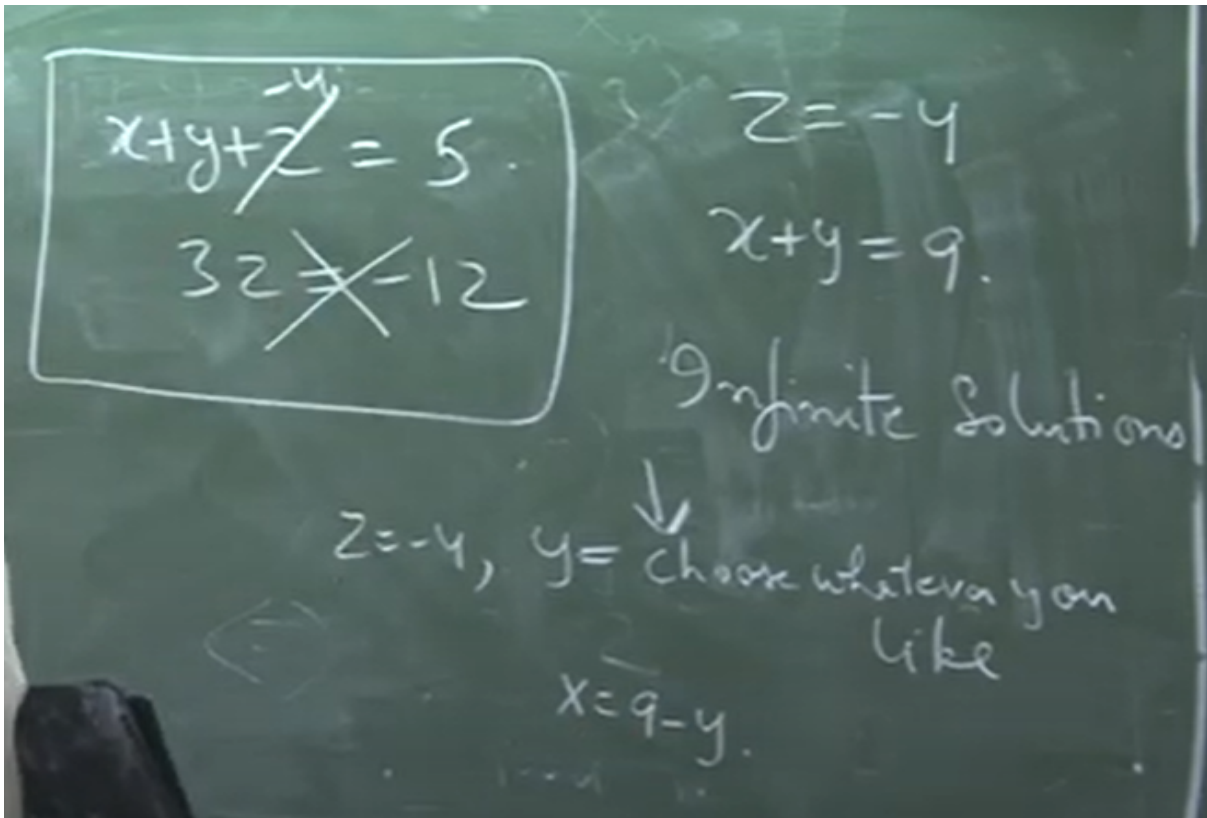 -4
x+y+z = 5.
3z = -12
z = -4
x+y = 9.
Infinite Solutions
↓
z=-4, y= choose whatever you
like
x=9-y.